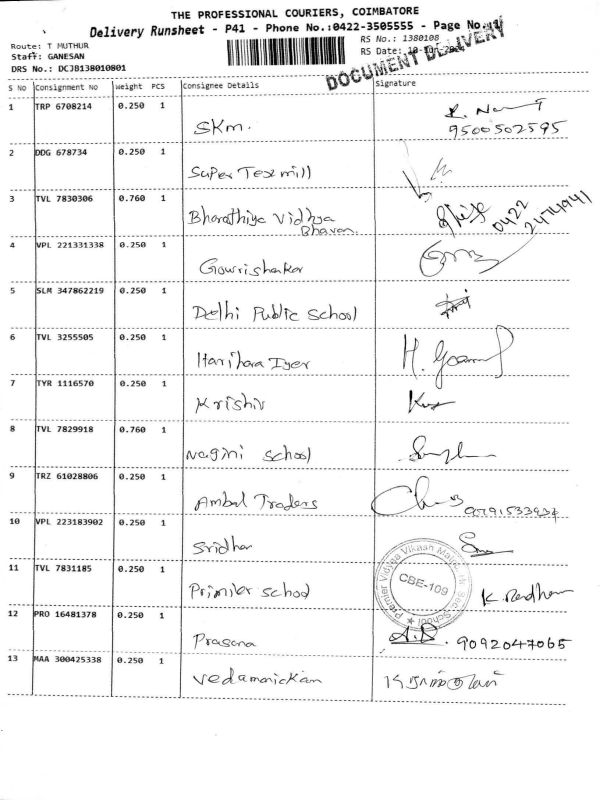 THE PROFESSIONAL COURIERS, COIMBATORE
Delivery Runsheet - P41 - Phone No.:0422-3505555 - Page No.:1
Route: T MUTHUR
RS No.: 1380108
Staff: GANESAN
RS Date:
DRS No.: DCJB138010801
DOCUMENT DELIVERY
S No Consignment No Weight PCS Consignee Details Signature
1 TRP 6708214 0.250 1 SKM.
9500502595
2 DDG 678734 0.250 1 Super Texmill
3 TVL 7830306 0.760 1 Bharathiya Vidhya
Bhavan.
0422
2474941
4 VPL 221331338 0.250 1 Gowrishankar
5 SLM 347862219 0.250 1 Delhi Public School
6 TVL 3255505 0.250 1 Harihara Iyer
7 TYR 1116570 0.250 1 Krishiv
8 TVL 7829918 0.760 1 Nagini School
9 TRZ 61028806 0.250 1 Ambal Traders
10 VPL 223183902 0.250 1 Sridhar
11 TVL 7831185 0.250 1 Primier School
CBE-109
12 PRO 16481378 0.250 1 Prasana
9092047065
13 MAA 300425338 0.250 1 Vedamanickam